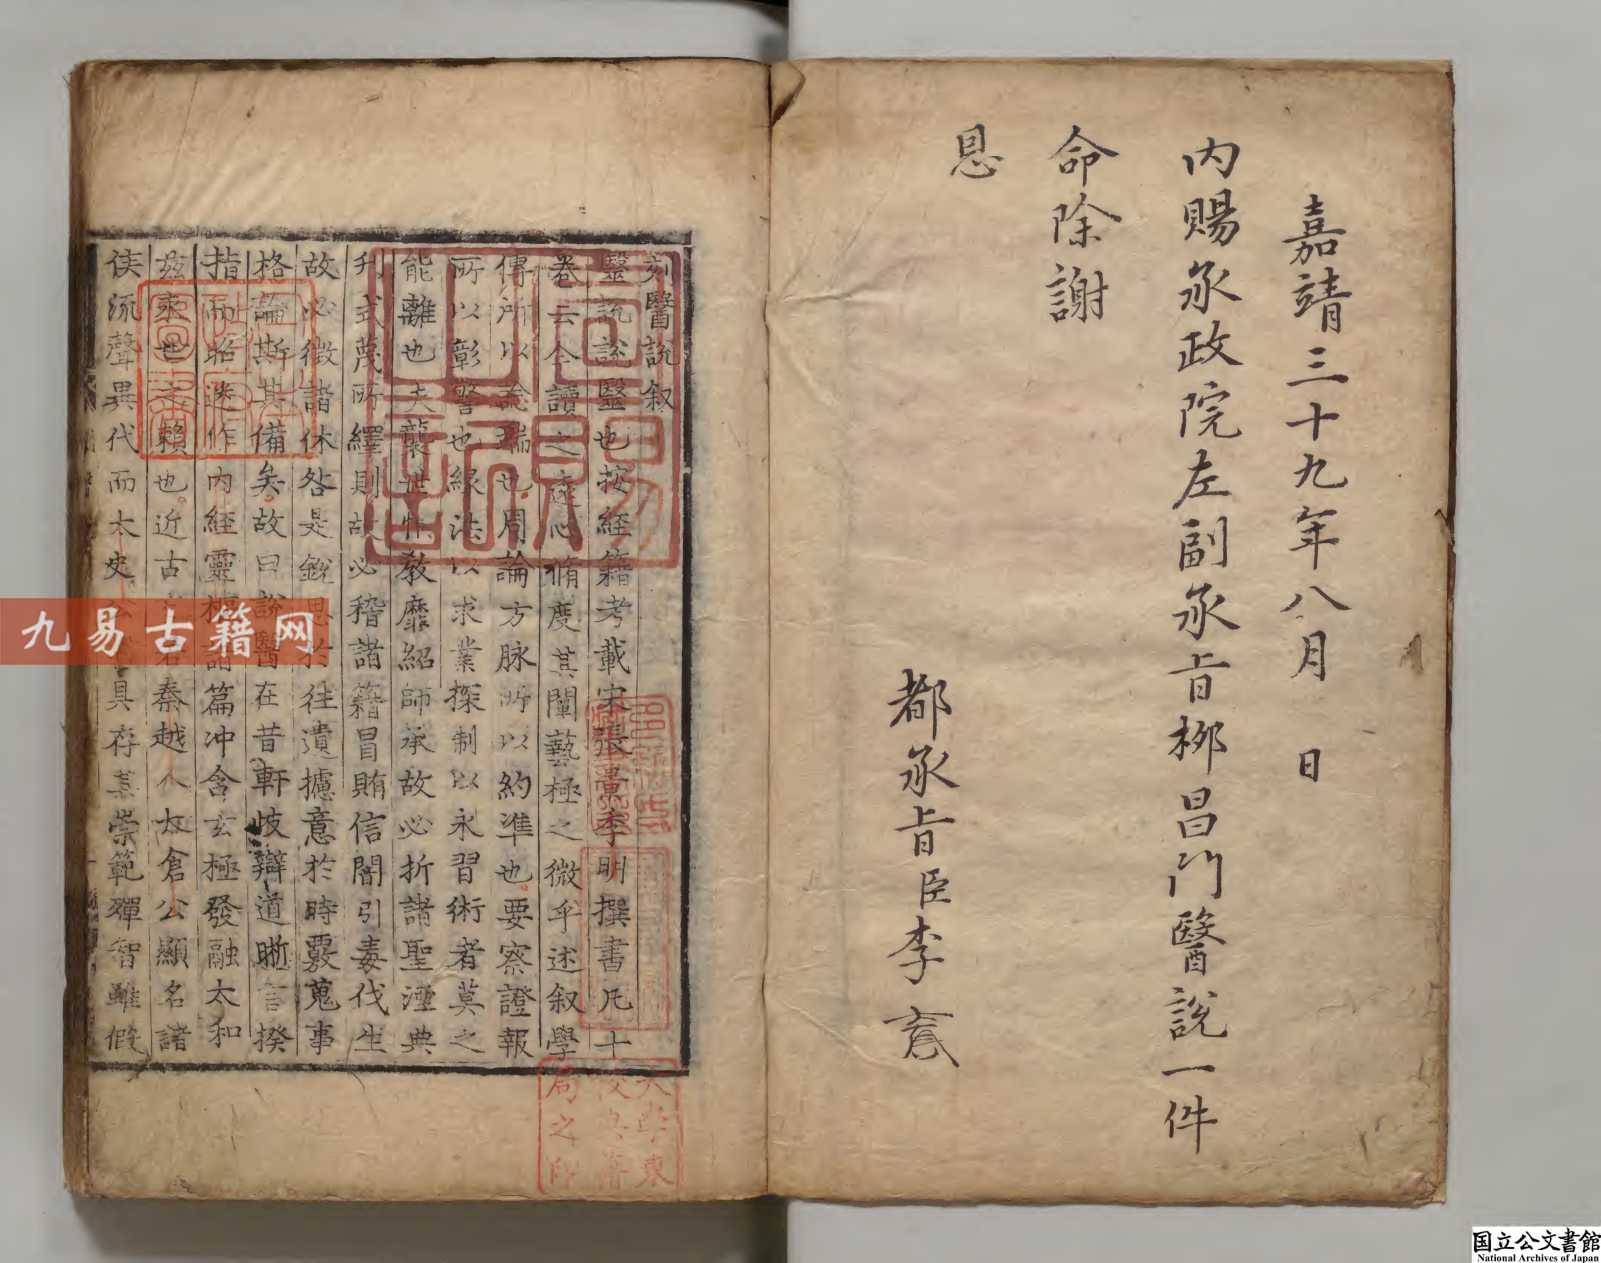 嘉靖三十九年八月　日
内賜承政院左副承旨柳昌門醫說一件
命除謝
恩
都承旨臣李
刻醫說叙
醫說說醫也按經籍考載宋張杲季明撰書凡十
卷云今讀之遠心脩度其闡藝極之微乎述叙學
傳所以論端也周論方脉所以約準也要察證報
所以彰警也緑法以求業探制以永習術者莫之
能離也夫襲世怍教靡紹師承故必折諸聖湮典
刋式蔑所繹則故必稽諸籍冒賄信闇引毒伐生
故必徵諸休咎是銳思於往遺攄意於時覈蒐事
格論斯其備矣故曰說醫在昔軒岐辯道晣言揆
指而昭迷作内經靈樞諸篇冲含玄極發融太和
兹乘世之賴也近古秦越人太倉公顯名諸
侯流聲異代而太史具存其崇範殫智雖假
大學東
校典籍
局之印
九易古籍网
国立公文書館
National Archives of Japan